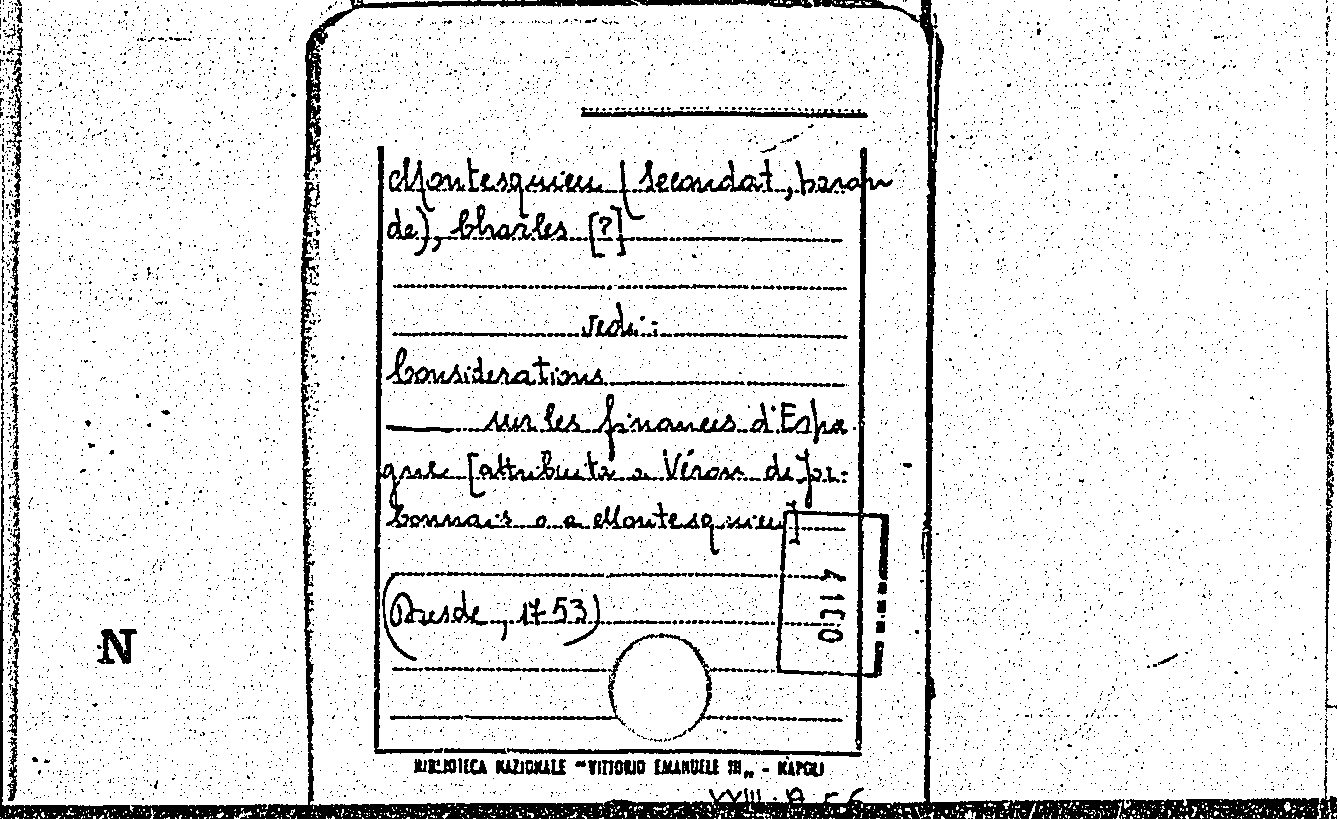 Montesquieu (Secondat, baron
de), Charles [?]
vedi:
Considerations
—— sur les finances d'Espa-
gne [attribuita a Véron de For-
bonnais o a Montesquieu]
(Dresde, 1753)
N
BIBLIOTECA NAZIONALE "VITTORIO EMANUELE III„ - NAPOLI